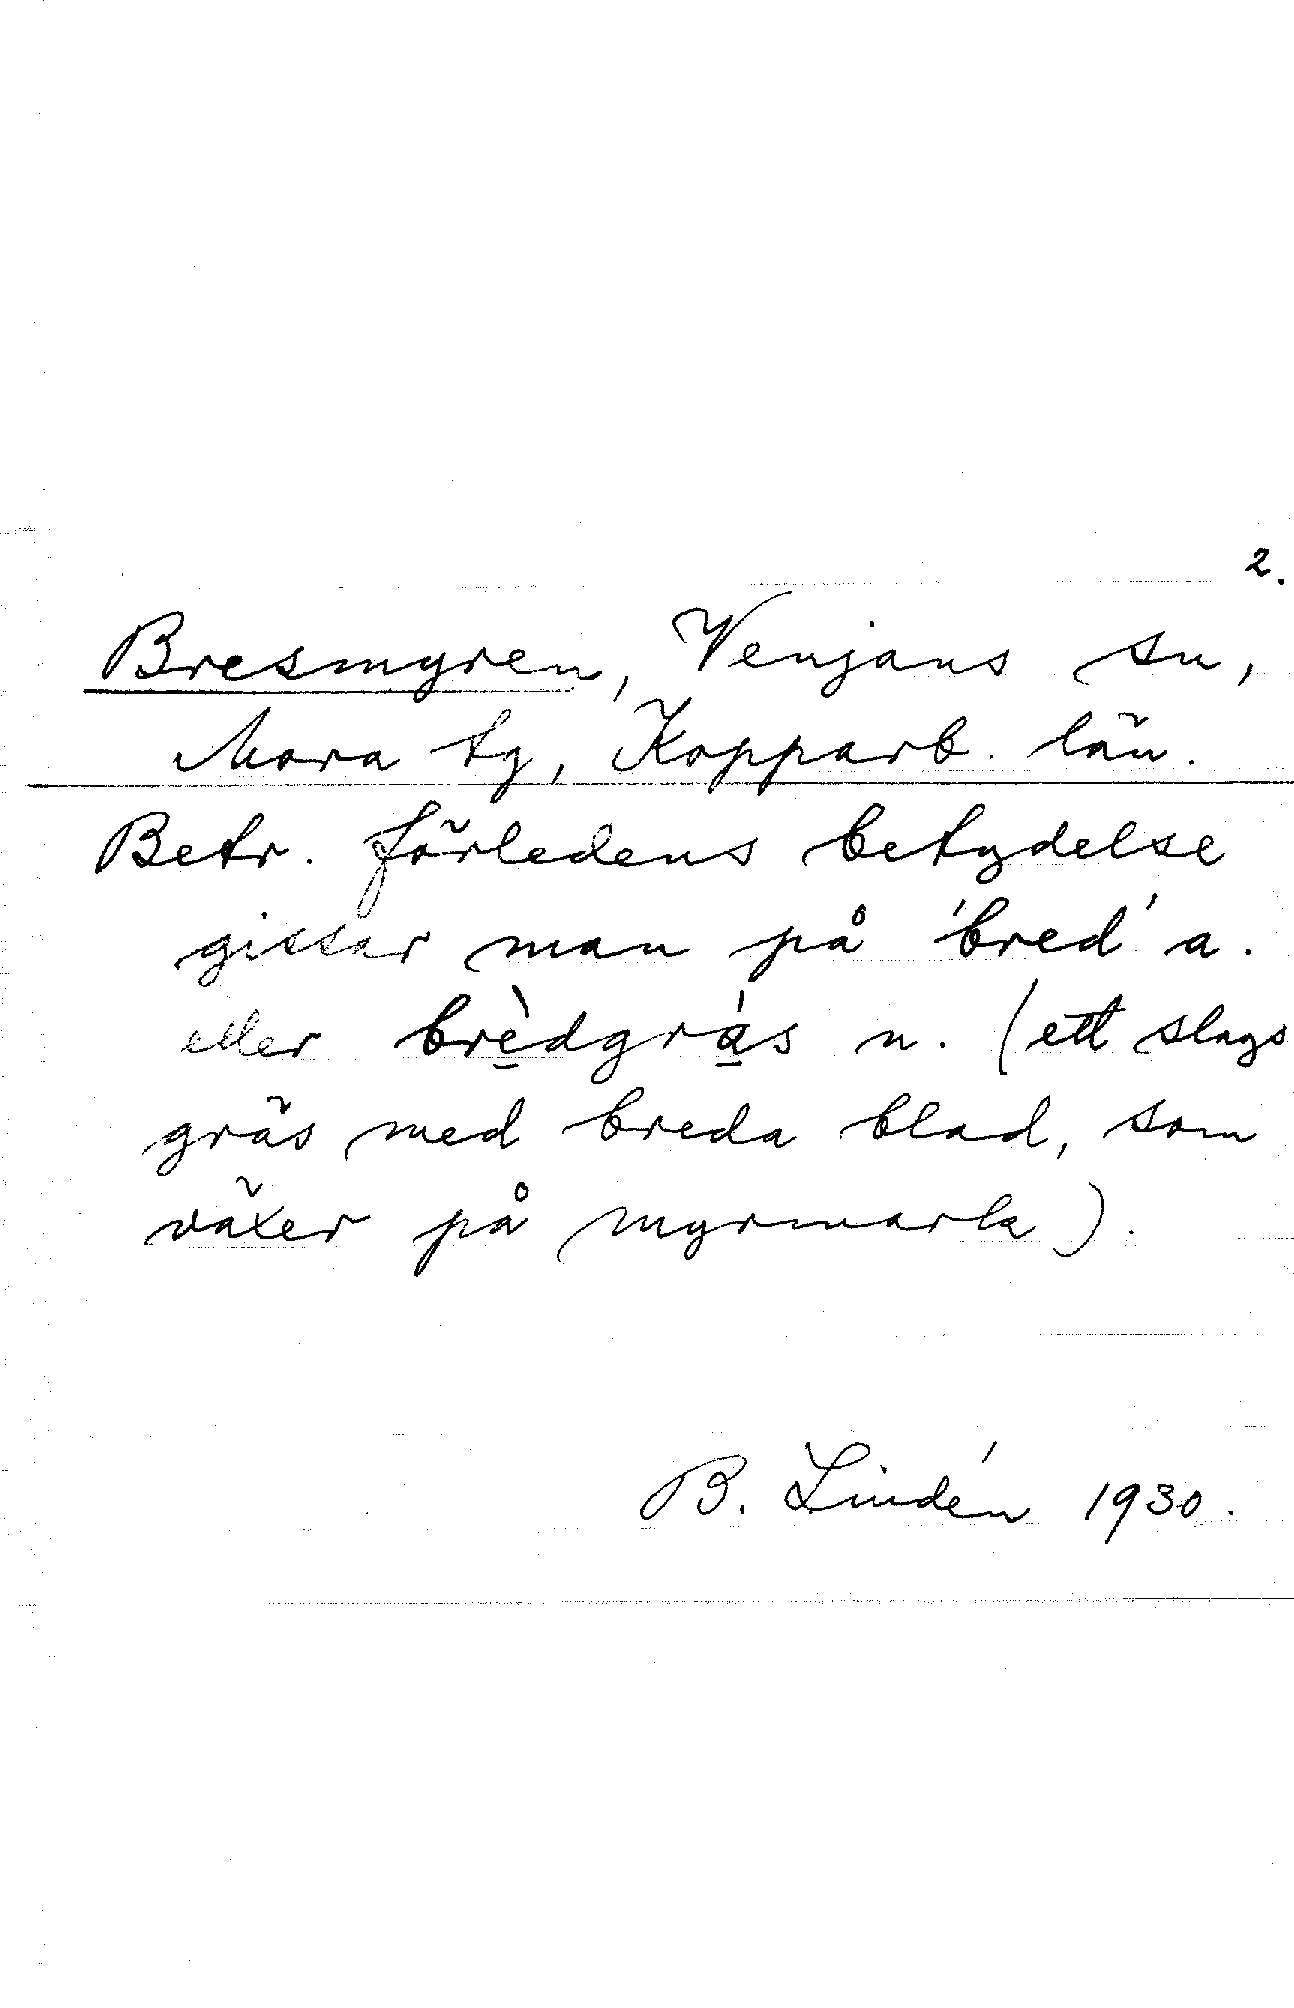 2.
Bresmyren, Venjans sn,
Mora tg, Kopparb. län.
Betr. förledens betydelse
gissar man på 'bred' a.
eller brè̱dgrá̱s n. (ett slags
gräs med breda blad, som
växer på myrmark).
B. Lindén 1930.